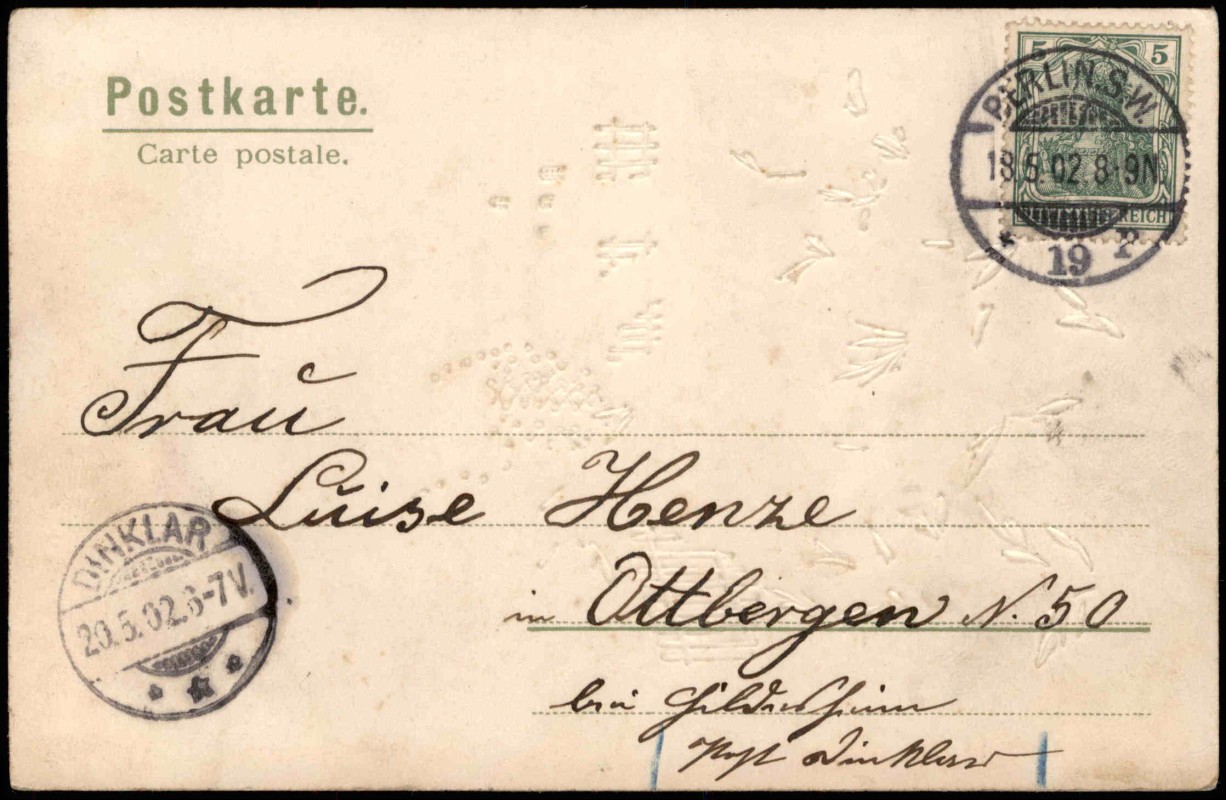 Postkarte.
Carte postale.
5 5
REICH
BERLIN. S.W.
18.5.02.8-9N.
* 19 P
Frau
Luise Henze
in Ottbergen N. 50
bei Hildesheim
Post Dinklar
DINKLAR
20.5.02.6-7V.